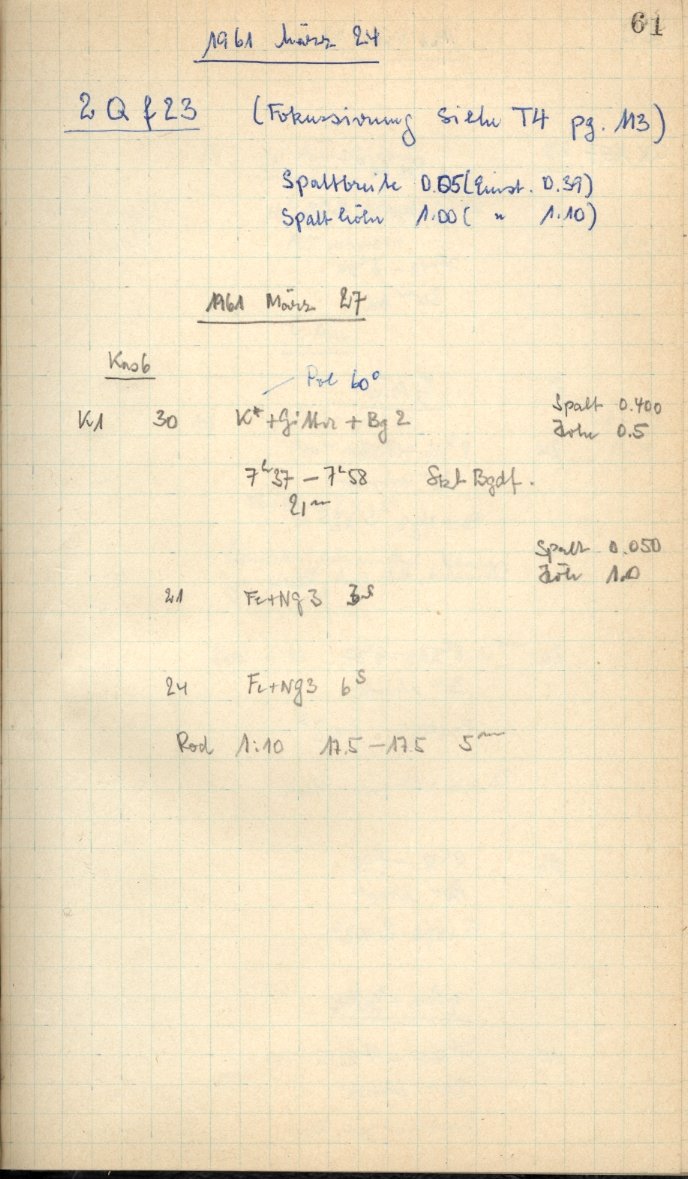 61
1961 März 24
2 Q f 23 (Fokussierung siehe T4 pg. 113)
Spaltbreite 0.05 (Einst. 0.39)
Spalthöhe 1.00 ( " 1.10)
1961 März 27
Kas 6
Pol 60°
K1 30 K* + Gitter + Bg 2
Spalt 0.400
Höhe 0.5
7h37 – 7h58 Bgdf.
21m
Spalt 0.050
Höhe 1.0
21 Fe+Ng3 3s
24 Fe+Ng3 6s
Rod 1:10 17.5 – 17.5 5m